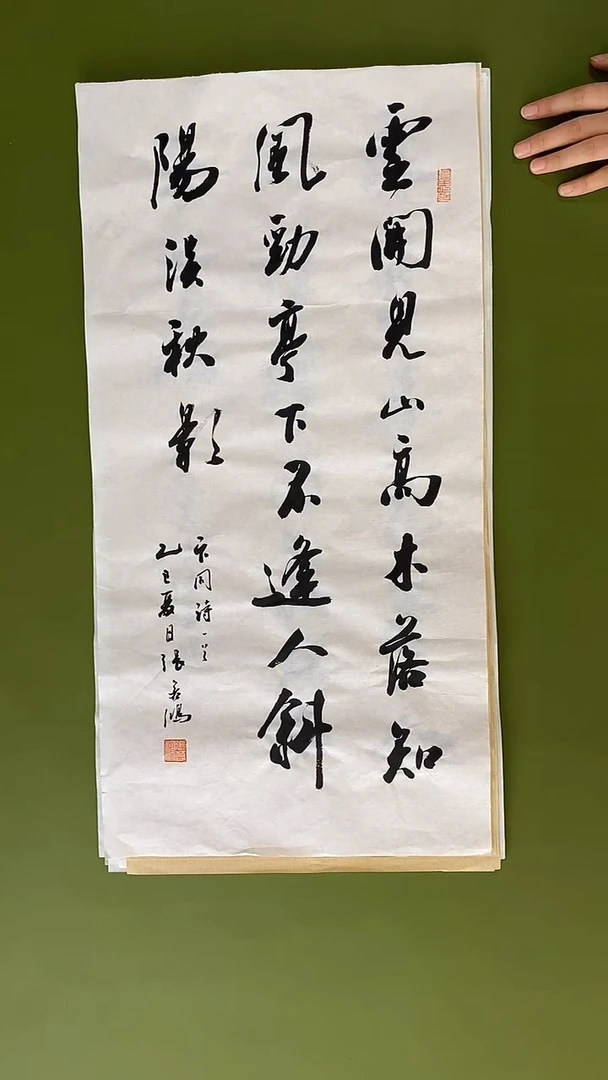 雲開見山高木落知
風勁亭下不逢人斜
陽淡秋影
卞同詩一首
乙巳夏日張鴻